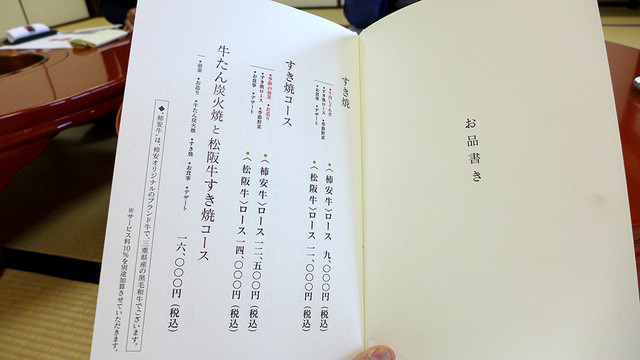 お品書き
すき焼
・牛肉しぐれ煮
・すき焼ロース ・季節野菜
・お食事 ・デザート
〈柿安牛〉ロース 九、〇〇〇円(税込)
〈松阪牛〉ロース 一一、〇〇〇円(税込)
すき焼コース
・季節の前菜 ・お造り
・すき焼ロース ・季節野菜
・お食事 ・デザート
〈柿安牛〉ロース 一二、五〇〇円(税込)
〈松阪牛〉ロース 一四、〇〇〇円(税込)
牛たん炭火焼と松阪牛すき焼コース
・前菜 ・お造り ・牛たん炭火焼 ・すき焼 ・お食事 ・デザート
一六、〇〇〇円(税込)
◆「柿安牛」は、柿安オリジナルのブランド牛で、三重県産の黒毛和牛でございます。
※サービス料10%を別途加算させていただきます。